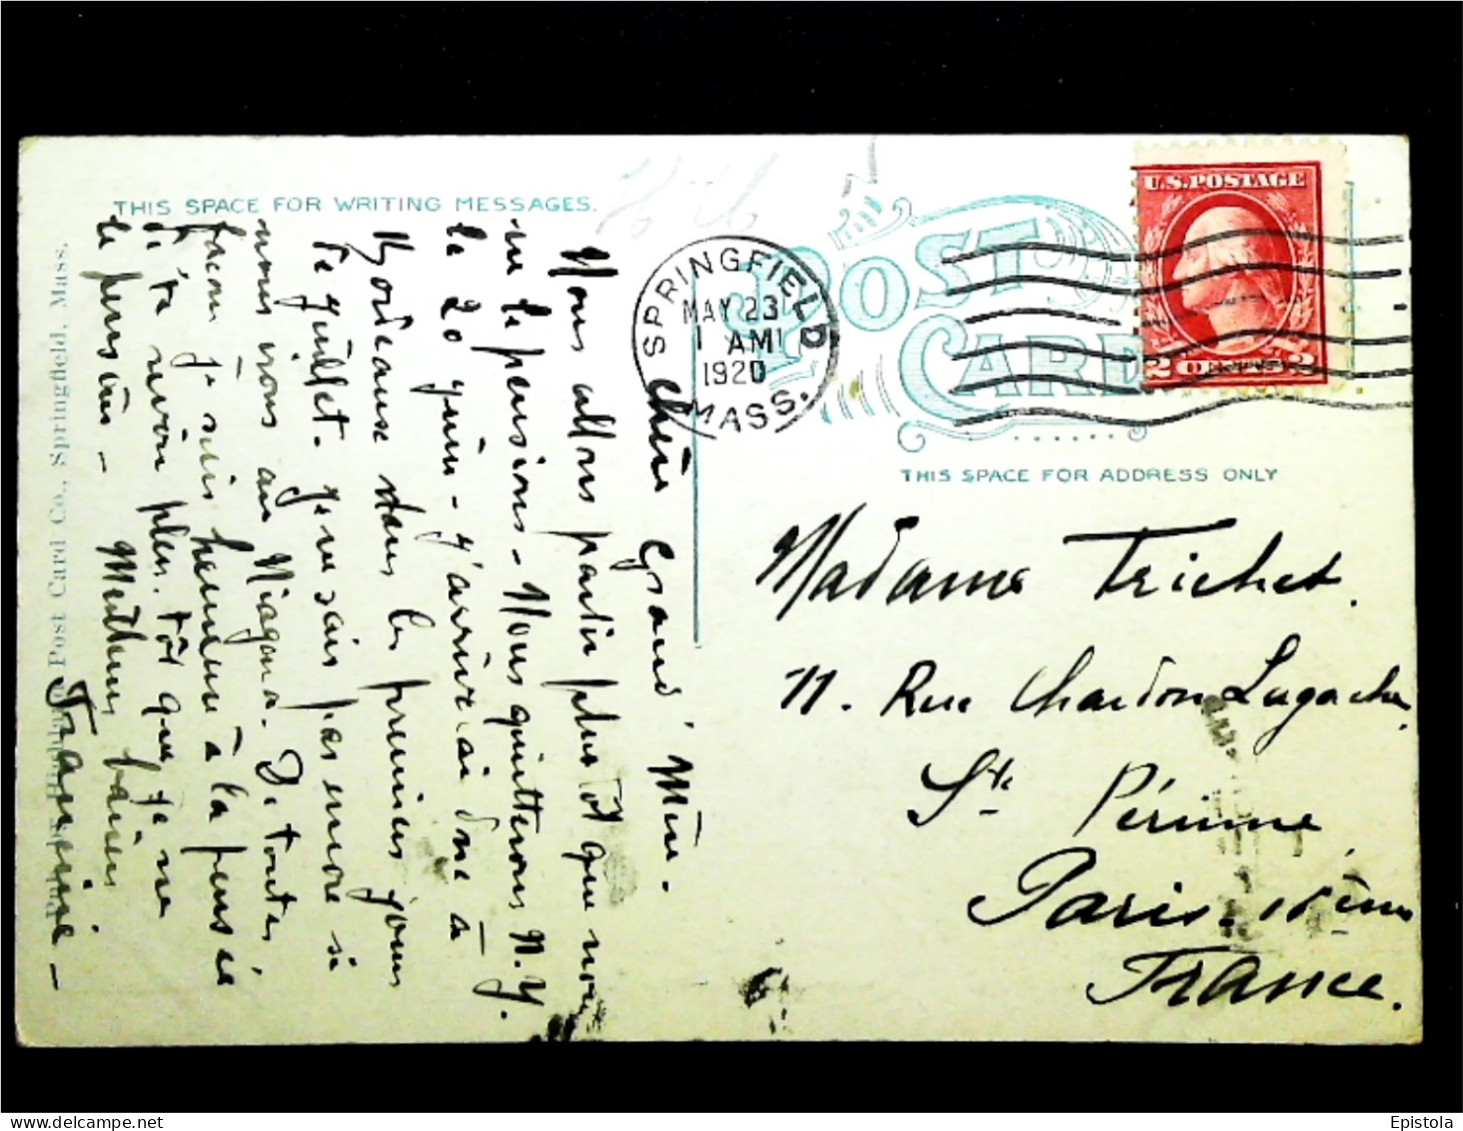 THIS SPACE FOR WRITING MESSAGES.
Chère Grand' Mère.
Nous allons partir plus tôt que nous
ne le pensions - Nous quitterons N.Y.
le 20 juin - j'arriverai donc à
Bordeaux dans les premiers jours
de juillet. Je ne sais pas encore si
nous irons au Niagara. De toutes
façons je suis heureux à la pensée
de te revoir plus tôt que je ne
le pensais -
Meilleurs baisers
Post Card Co., Springfield, Mass.
SPRINGFIELD
MAY 23
1 AM
1920
MASS.
POST CARD
U.S. POSTAGE
2 CENTS 2
THIS SPACE FOR ADDRESS ONLY
Madame Trichet.
11. Rue Chardon Lagache
Ste Périnne
Paris. 16ème
France.
delcampe.net
Epistola